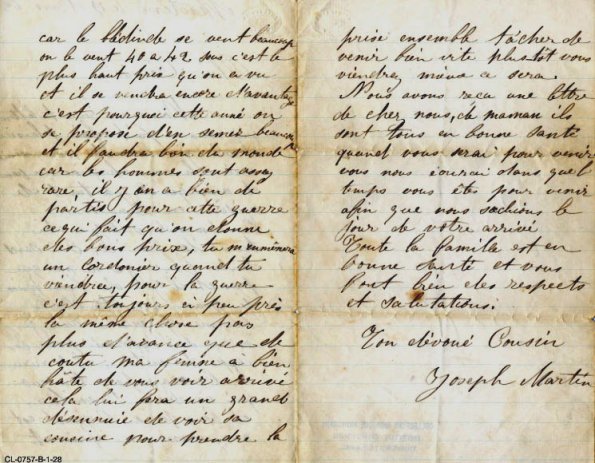 car le bledinde se vent beaucoup
on le vent 40 a 42 sous c'est le
plus haut prix qu'on a vu
et il se vendra encore d'avantage
c'est pourquoi cette anné on
se propose d'en semer beaucoup
et il faudra bien du monde
car les hommes sont assez
rare il y en a bien de
partis pour cette guerre
ce qui fait qu'on donne
des bons prix, tu m'emmènera
un cordonier quand tu
viendrea, pour la guerre
c'est toujours ci peu près
la même chose pas
plus d'avance que de
coutu ma femme à bien
hâte de vous voir arrivé
cela lui fera un grand
désennuie de voir sa
cousine pour prendre la
prise ensemble tâcher de
venir bien vite plustôt vous
viendrez mieux ce sera.
Nous avons reçu une lettre
de chez nous, de maman ils
sont tous en bonne santé
quand vous serai pour venir
vous nous écrirai dans quel
temps vous êtes pour venir
afin que nous sachions le
jour de votre arrivé
Toute la famille est en
bonne santé et vous
font bien des respects
et salutations.
Ton dévoué Cousin
Joseph Martin
CL-0757-B-1-28